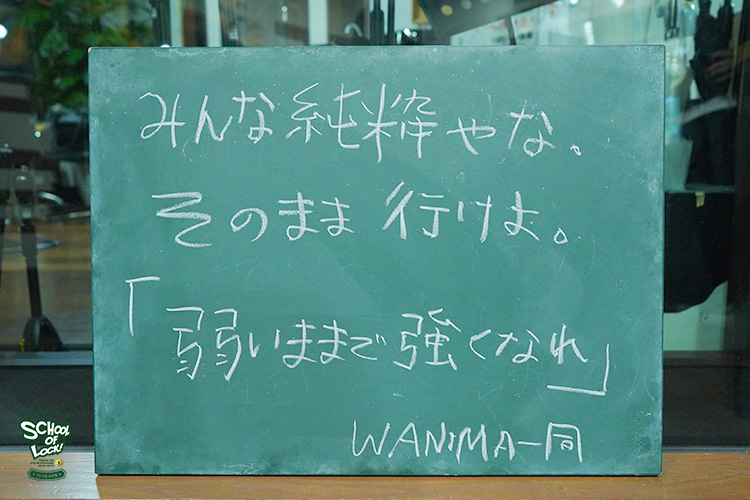 みんな純粋やな。
そのまま行けよ。
「弱いままで強くなれ」
WANIMA一同
SCHOOL
OF
LOCK!